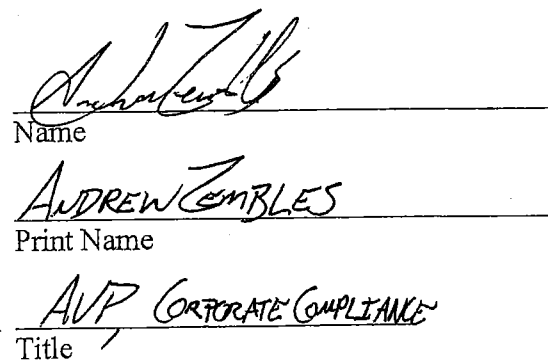 Andrew Zembles
Name
ANDREW ZEMBLES
Print Name
AVP, CORPORATE COMPLIANCE
Title